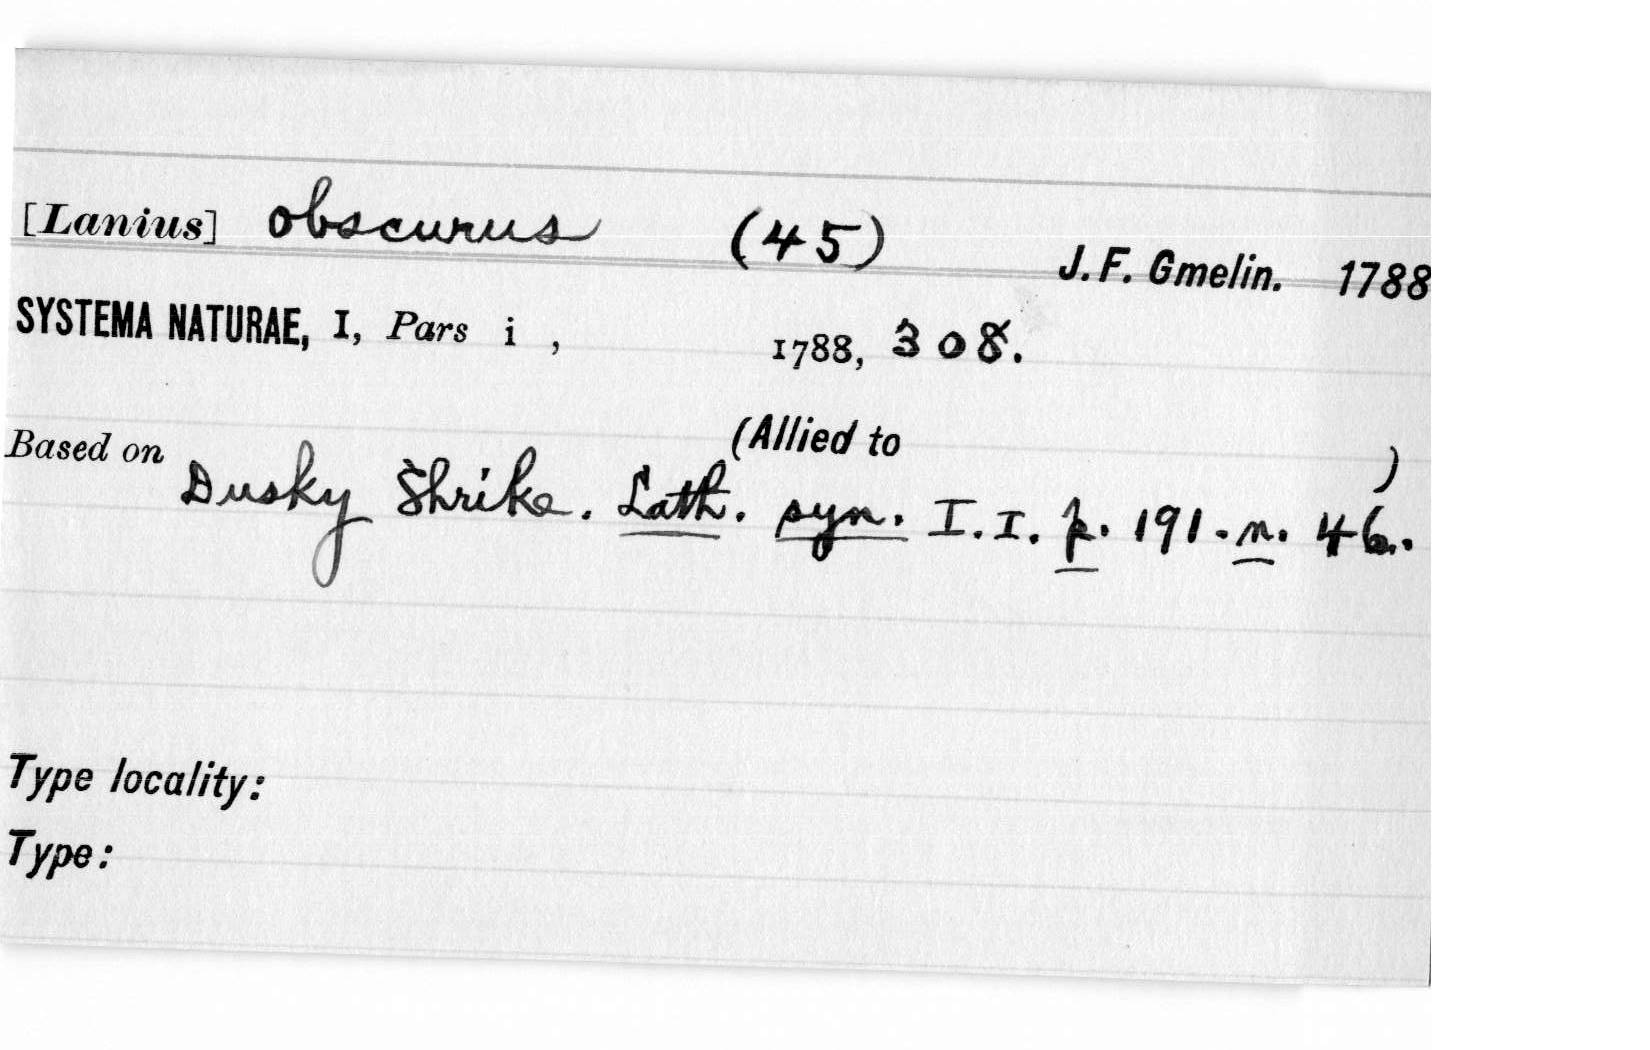 [Lanius] obscurus (45) J. F. Gmelin. 1788
SYSTEMA NATURAE, I, Pars i , 1788, 308.
(Allied to )
Based on Dusky Shrike. Lath. syn. I. I. p. 191. n. 46.
Type locality:
Type: